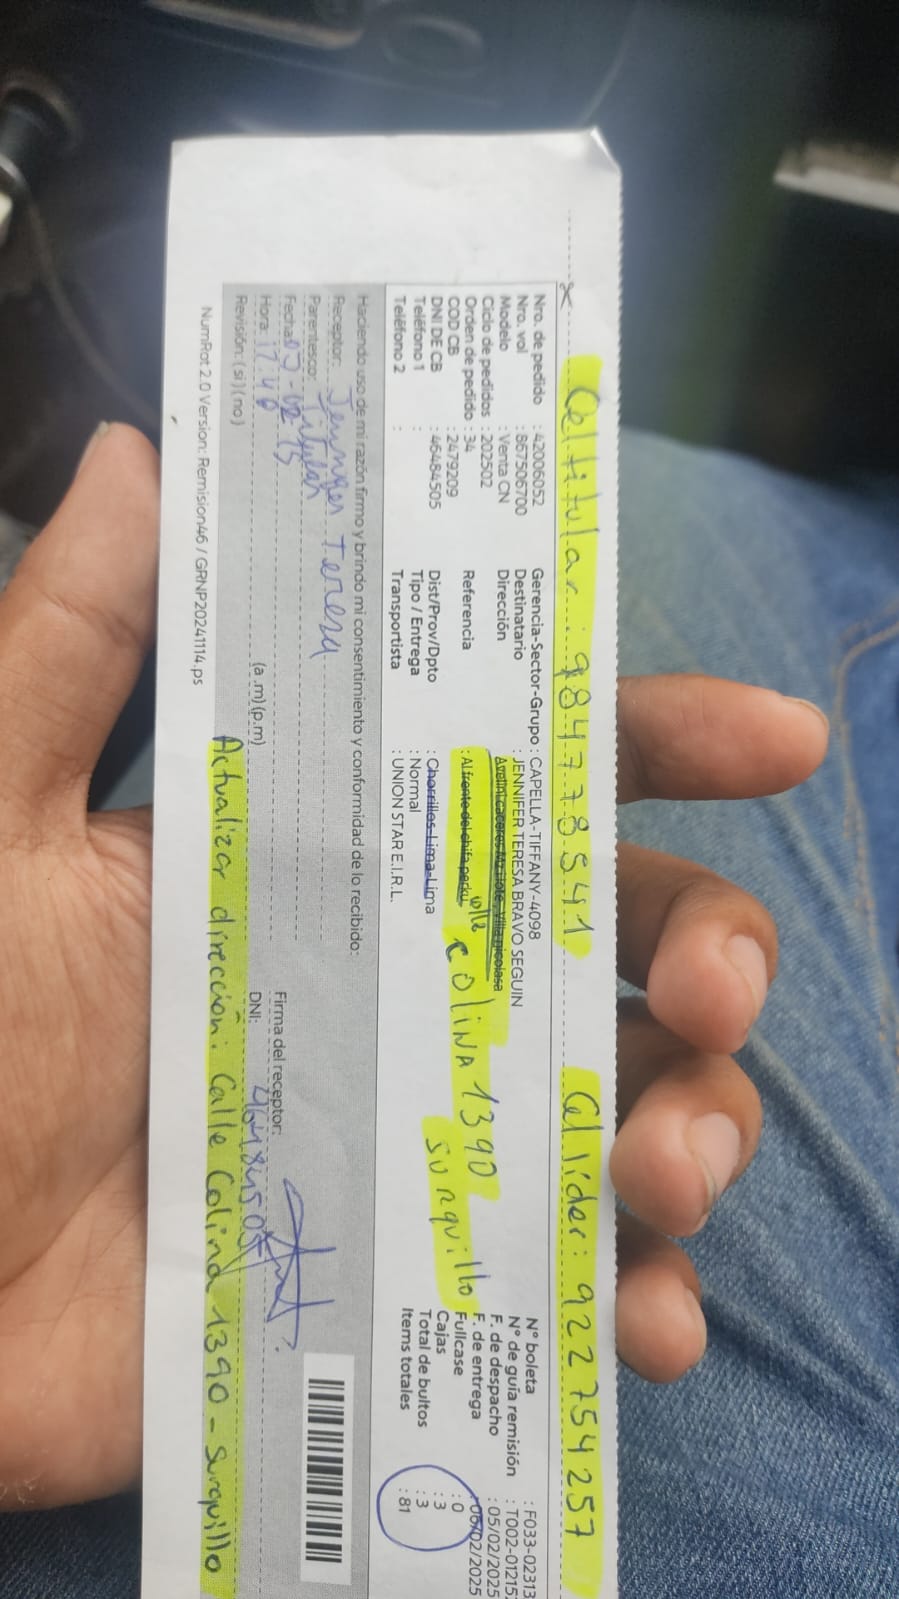 Cel titular: 984778541 Cel lider: 922754257
Nro. de pedido : 42006052
Nro. vol : 867506700
Modelo : Venta CN
Ciclo de pedidos : 202502
Orden de pedido : 34
COD CB : 2479209
DNI DE CB : 46484505
Teléfono 1 :
Teléfono 2 :
Gerencia-Sector-Grupo : CAPELLA-TIFFANY-4098
Destinatario : JENNIFER TERESA BRAVO SEGUIN
Dirección :
Referencia : Al frente del chifa
COLINA 1390
surquillo
Dist/Prov/Dpto : Chorrillos-Lima-Lima
Tipo / Entrega : Normal
Transportista : UNION STAR E.I.R.L.
N° boleta : F033-02313
N° de guía remisión : T002-01215
F. de despacho : 05/02/2025
F. de entrega : 06/02/2025
Fullcase : 0
Cajas : 3
Total de bultos : 3
Items totales : 81
Haciendo uso de mi razón firmo y brindo mi consentimiento y conformidad de lo recibido:
Receptor: Jennyfer Teresa
Parentesco: Titular
Fecha:
Hora: 17 40 (a.m) (p.m)
Revisión: ( si ) ( no )
Firma del receptor:
DNI: 46484505
Actualizar dirección: Calle Colina 1390 - Surquillo
NumRot 2.0 Version: Remision46 / GRNP20241114.ps